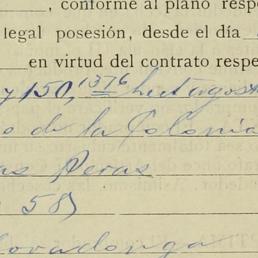 , conforme al plano resp
legal posesión, desde el día
en virtud del contrato respe
y 150, 1376 hectagos
o de la Colonia
as Peras
58
ovadonga